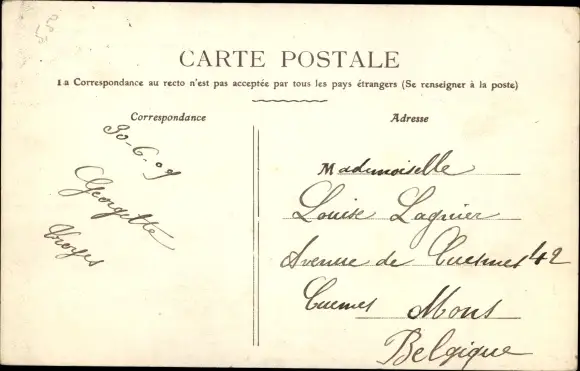 5,50
CARTE POSTALE
La Correspondance au recto n'est pas acceptée par tous les pays étrangers (Se renseigner à la poste)
Correspondance
30-6-09
Georgette
Troyes
Adresse
Mademoiselle
Louise Lagnier
Avenue de Cuesmes 42
Cuemes Mons
Belgique